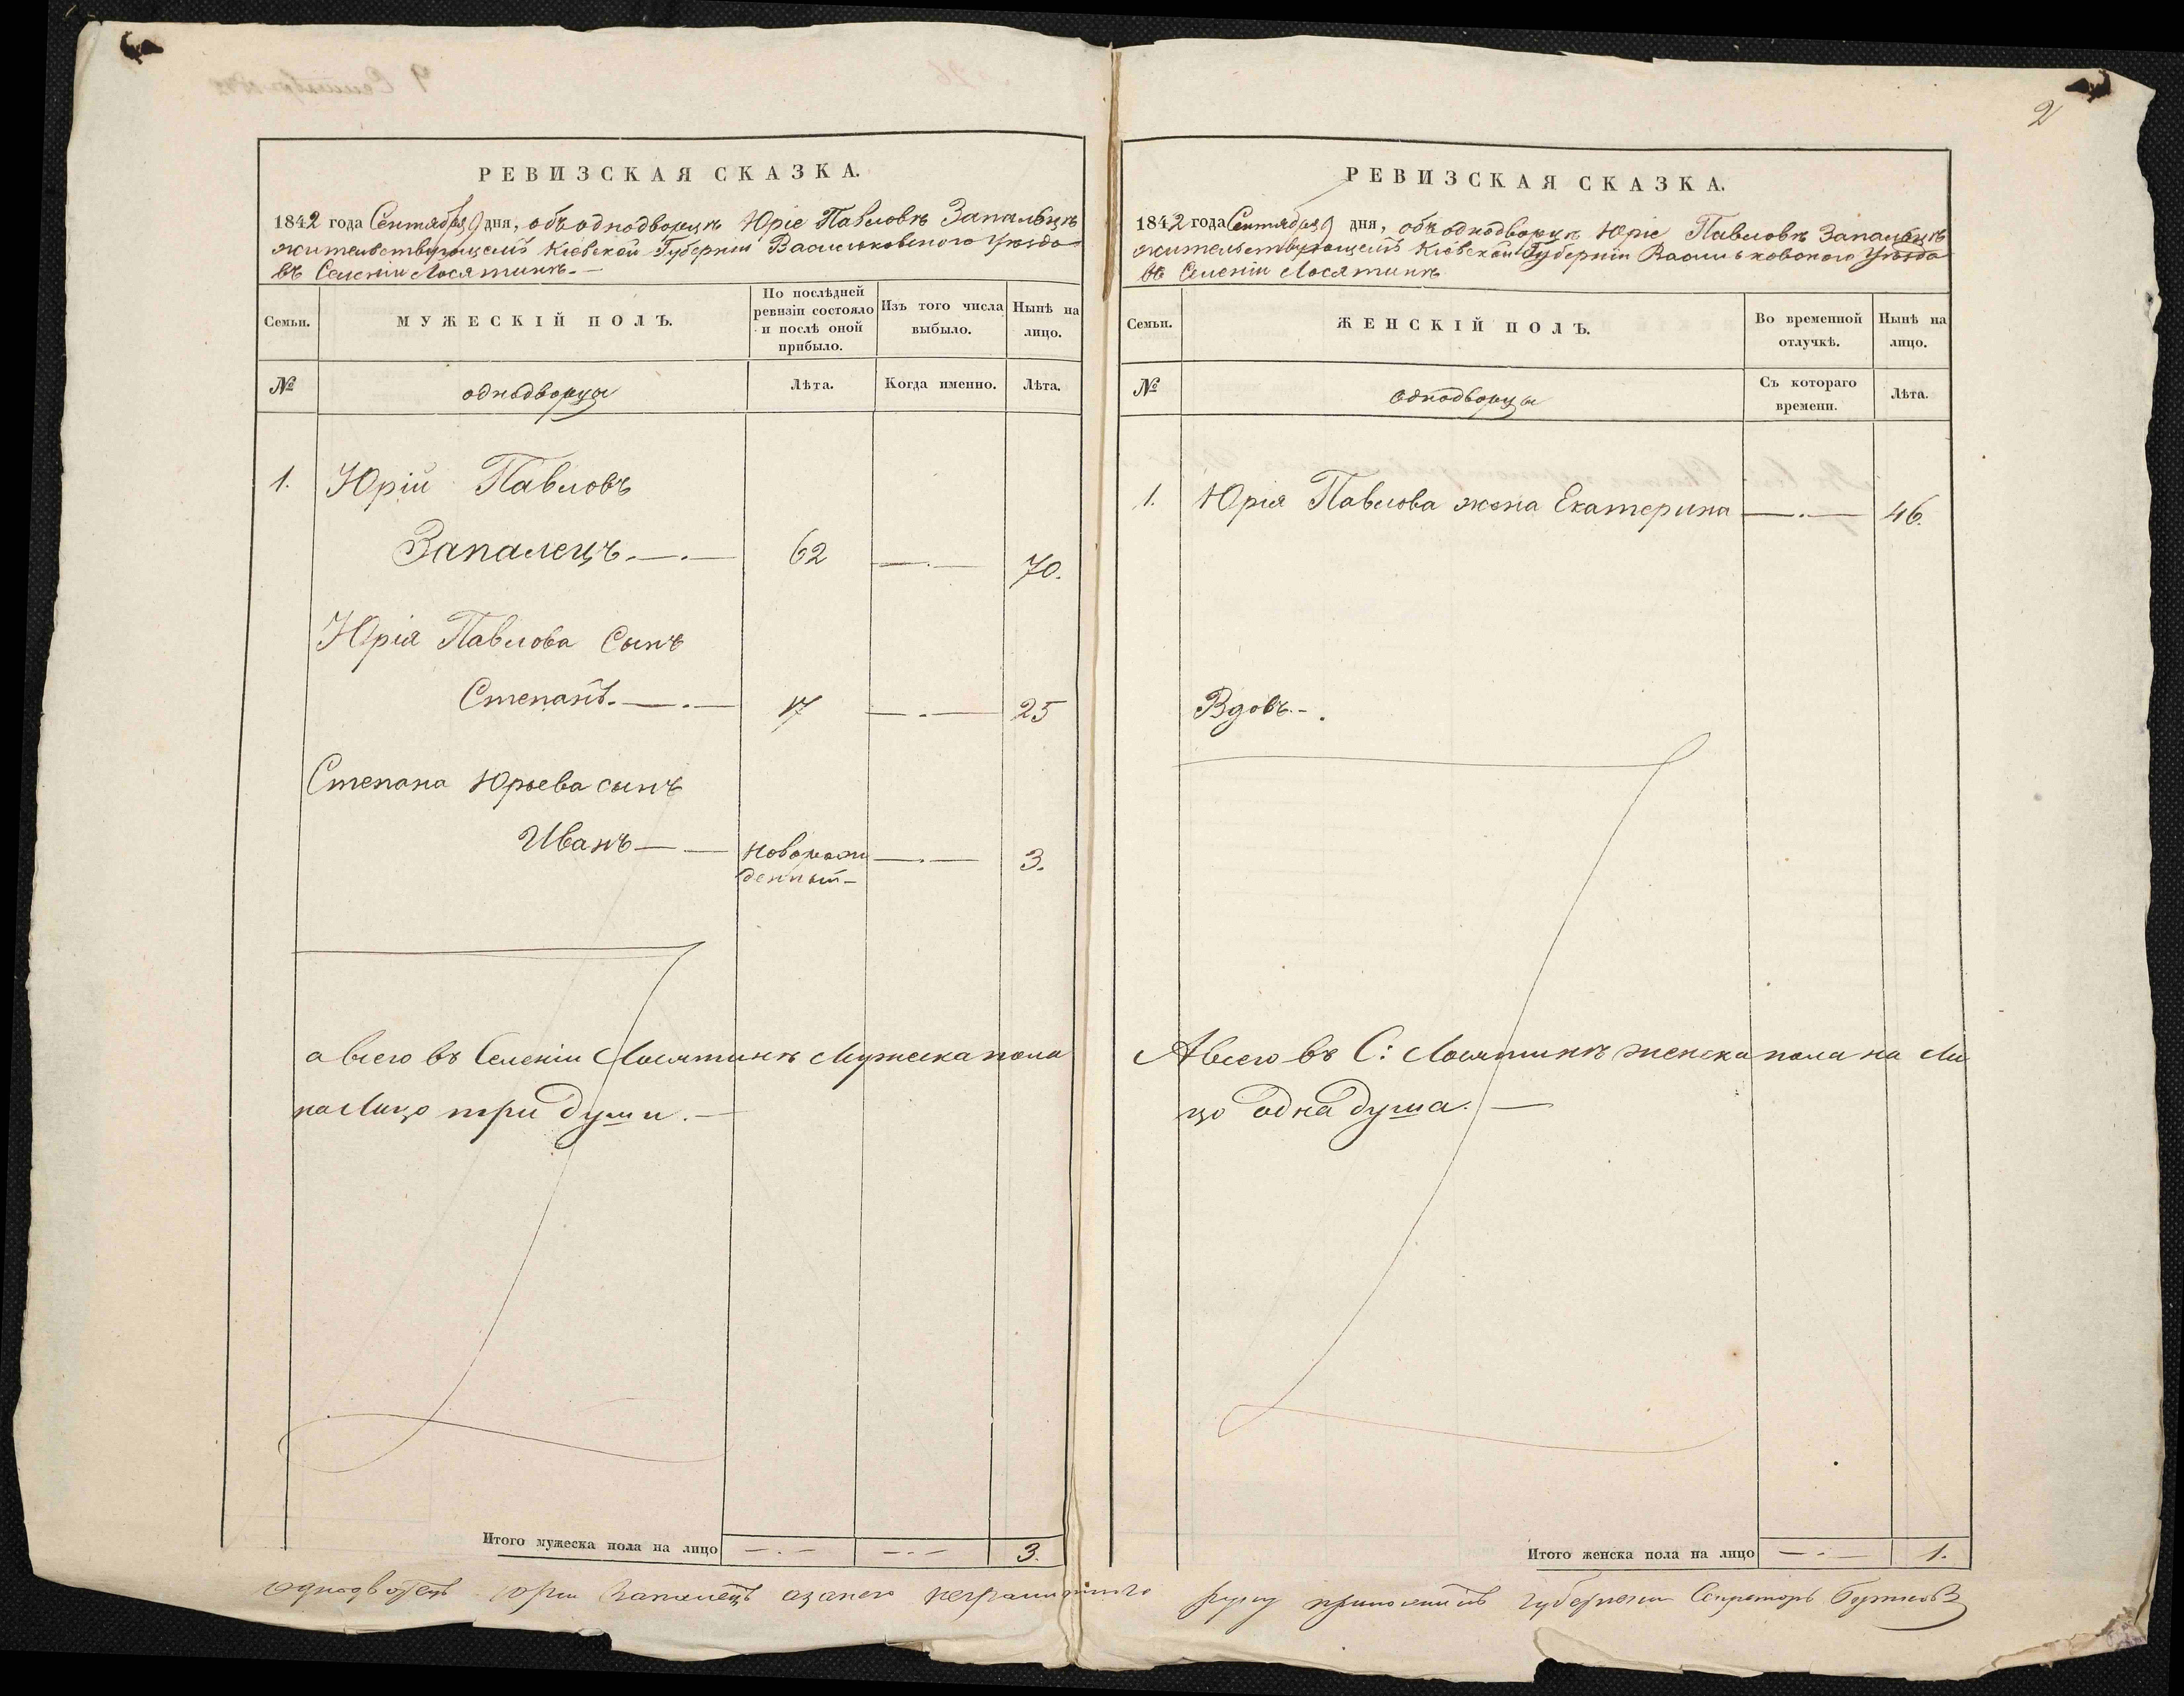 2
РЕВИЗСКАЯ СКАЗКА.
1842 года Сентября 9 дня, объ однодворцѣ Юріе Павловѣ Запальцѣ
жительствующемъ Кіевской Губерніи Васильковского уѣзда
въ Селеніи Лосятинкѣ.
Семьи.
МУЖЕСКІЙ ПОЛЪ.
По послѣдней ревизіи состояло и послѣ оной прибыло.
Изъ того числа выбыло.
Нынѣ на лицо.
№
однодворцы
Лѣта.
Когда именно.
Лѣта.
1. Юрій Павловъ
Запалецъ. 62 70.
Юрія Павлова Сынъ
Степанъ. 17 25
Степана Юрьева сынъ
Иванъ новорож
денный 3.
а всего въ Селеніи Лосятинкѣ Мужеска пола
на Лицо три души.
Итого мужеска пола на лицо 3.
РЕВИЗСКАЯ СКАЗКА.
1842 года Сентября 9 дня, объ однодворцѣ Юріе Павловѣ Запальцѣ
жительствующемъ Кіевской Губерніи Васильковского уѣзда
въ Селеніи Лосятинкѣ
Семьи.
ЖЕНСКІЙ ПОЛЪ.
Во временной отлучкѣ.
Нынѣ на лицо.
№
однодворцы
Съ котораго времени.
Лѣта.
1. Юрія Павлова жена Екатерина 46.
Вдовъ.
А всего въ С: Лосятинкѣ женска пола на Ли
цо одна душа.
Итого женска пола на лицо 1.
однодворецъ Юрій Запалецъ а занего неграмотного руку приложилъ Губернски Секретарь